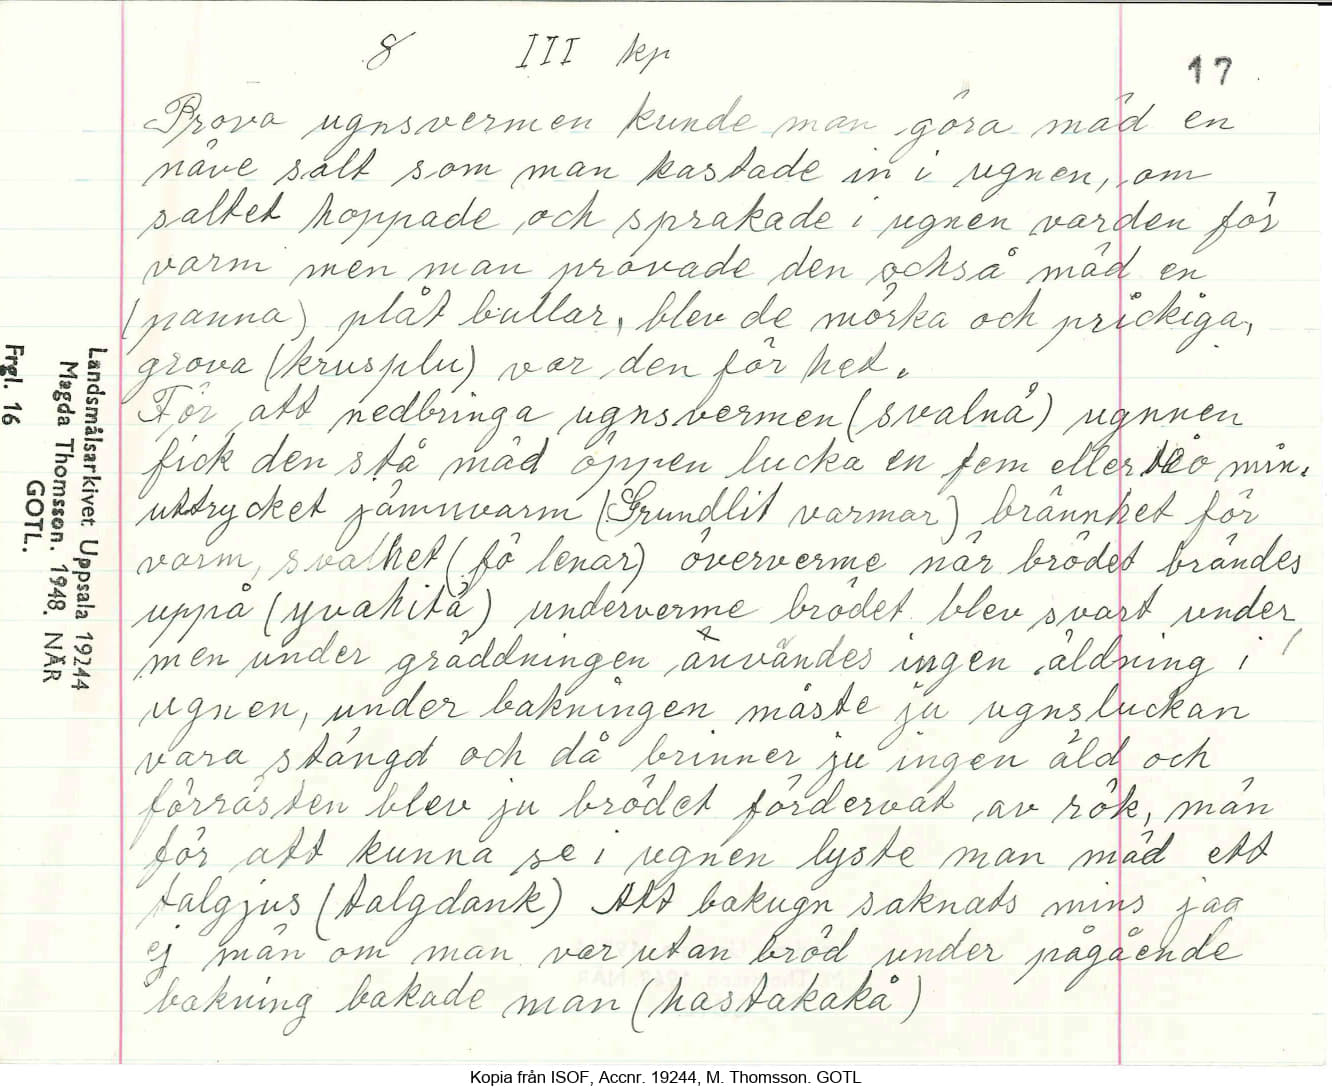 8 III kp
17
Prova ugnsvermen kunde man göra mäd en
näve salt som man kastade in i ugnen, om
saltet hoppade och sprakade i ugnen var den för
varm men man provade den också mäd en
(panna) plåt bullar, blev de mörka och prickiga,
grova (krusplu) var den för het.
För att nedbringa ugnsvermen (svalnå) ugnnen
fick den stå mäd öppen lucka en fem eller tio min.
uttrycket jämnvarm (Grundlit varmar) brännhet för
varm, svalhet (fö lenar) öververme när brödet brändes
uppå (yvahitå) underverme brödet blev svart under
men under gräddningen användes ingen äldning i
ugnen, under bakningen måste ju ugnsluckan
vara stängd och då brinner ju ingen äld och
förrästen blev ju brödet fördervat av rök, män
för att kunna se i ugnen lyste man mäd ett
talgjus (talgdank) Att bakugn saknats mins jag
ej män om man var utan bröd under pågående
bakning bakade man (hastakakå)
Landsmålsarkivet Uppsala 19244
Magda Thomsson. 1948. NÄR
GOTL.
Frgl. 16
Kopia från ISOF, Accnr. 19244, M. Thomsson. GOTL